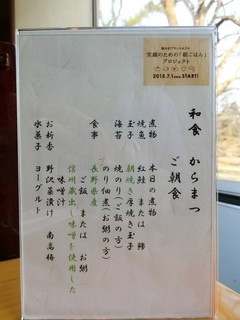 笑顔のための「朝ごはん」
プロジェクト
2018.7.1 START!
和食 からまつ
ご朝食
煮物 本日の煮物
焼魚 紅鮭 または 鯵
玉子 朝焼き厚焼き玉子
海苔 焼のり(ご飯の方)
のり佃煮(お粥の方)
食事 長野県産
ご飯 または お粥
信州蔵出し味噌を使用した
味噌汁
お新香 野沢菜漬け 南高梅
水菓子 ヨーグルト